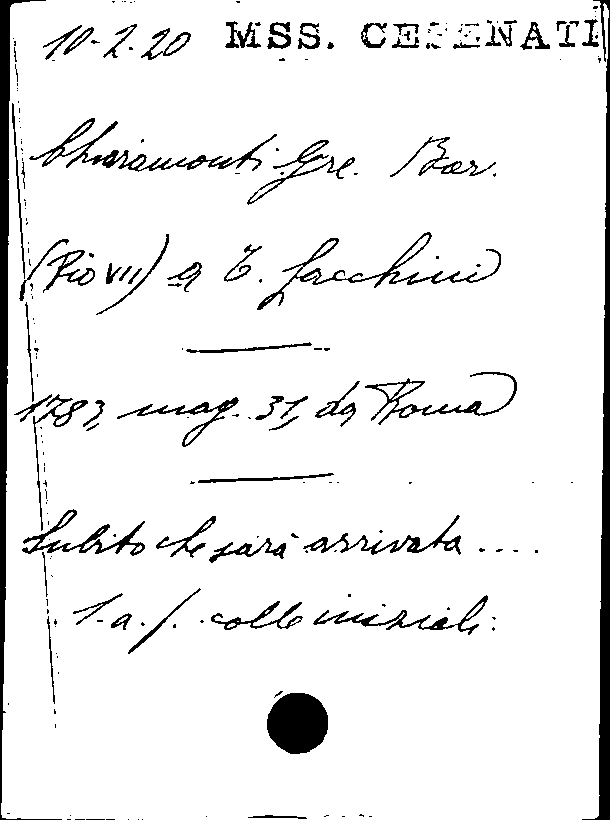 10-2-20 MSS. CESENATI
Chiaramonti Gre. Bar.
(Pio VII) a T. Zacchini
1783, mag. 31, da Roma
Subito che sarà arrivata ....
l. a. f. colle iniziali.